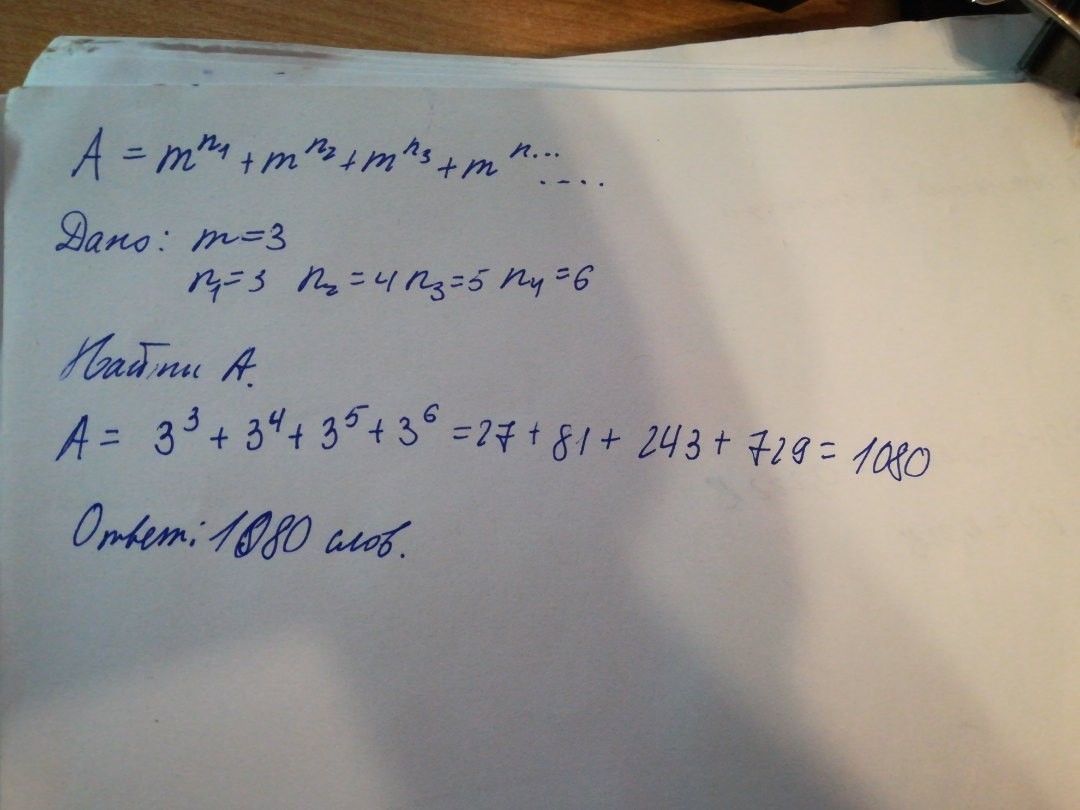 A = m^n₁ + m^n₂ + m^n₃ + m^n... ....
Дано: m=3
n₁=3 n₂=4 n₃=5 n₄=6
Найти A.
A = 3³ + 3⁴ + 3⁵ + 3⁶ = 27 + 81 + 243 + 729 = 1080
Ответ: 1080 слов.